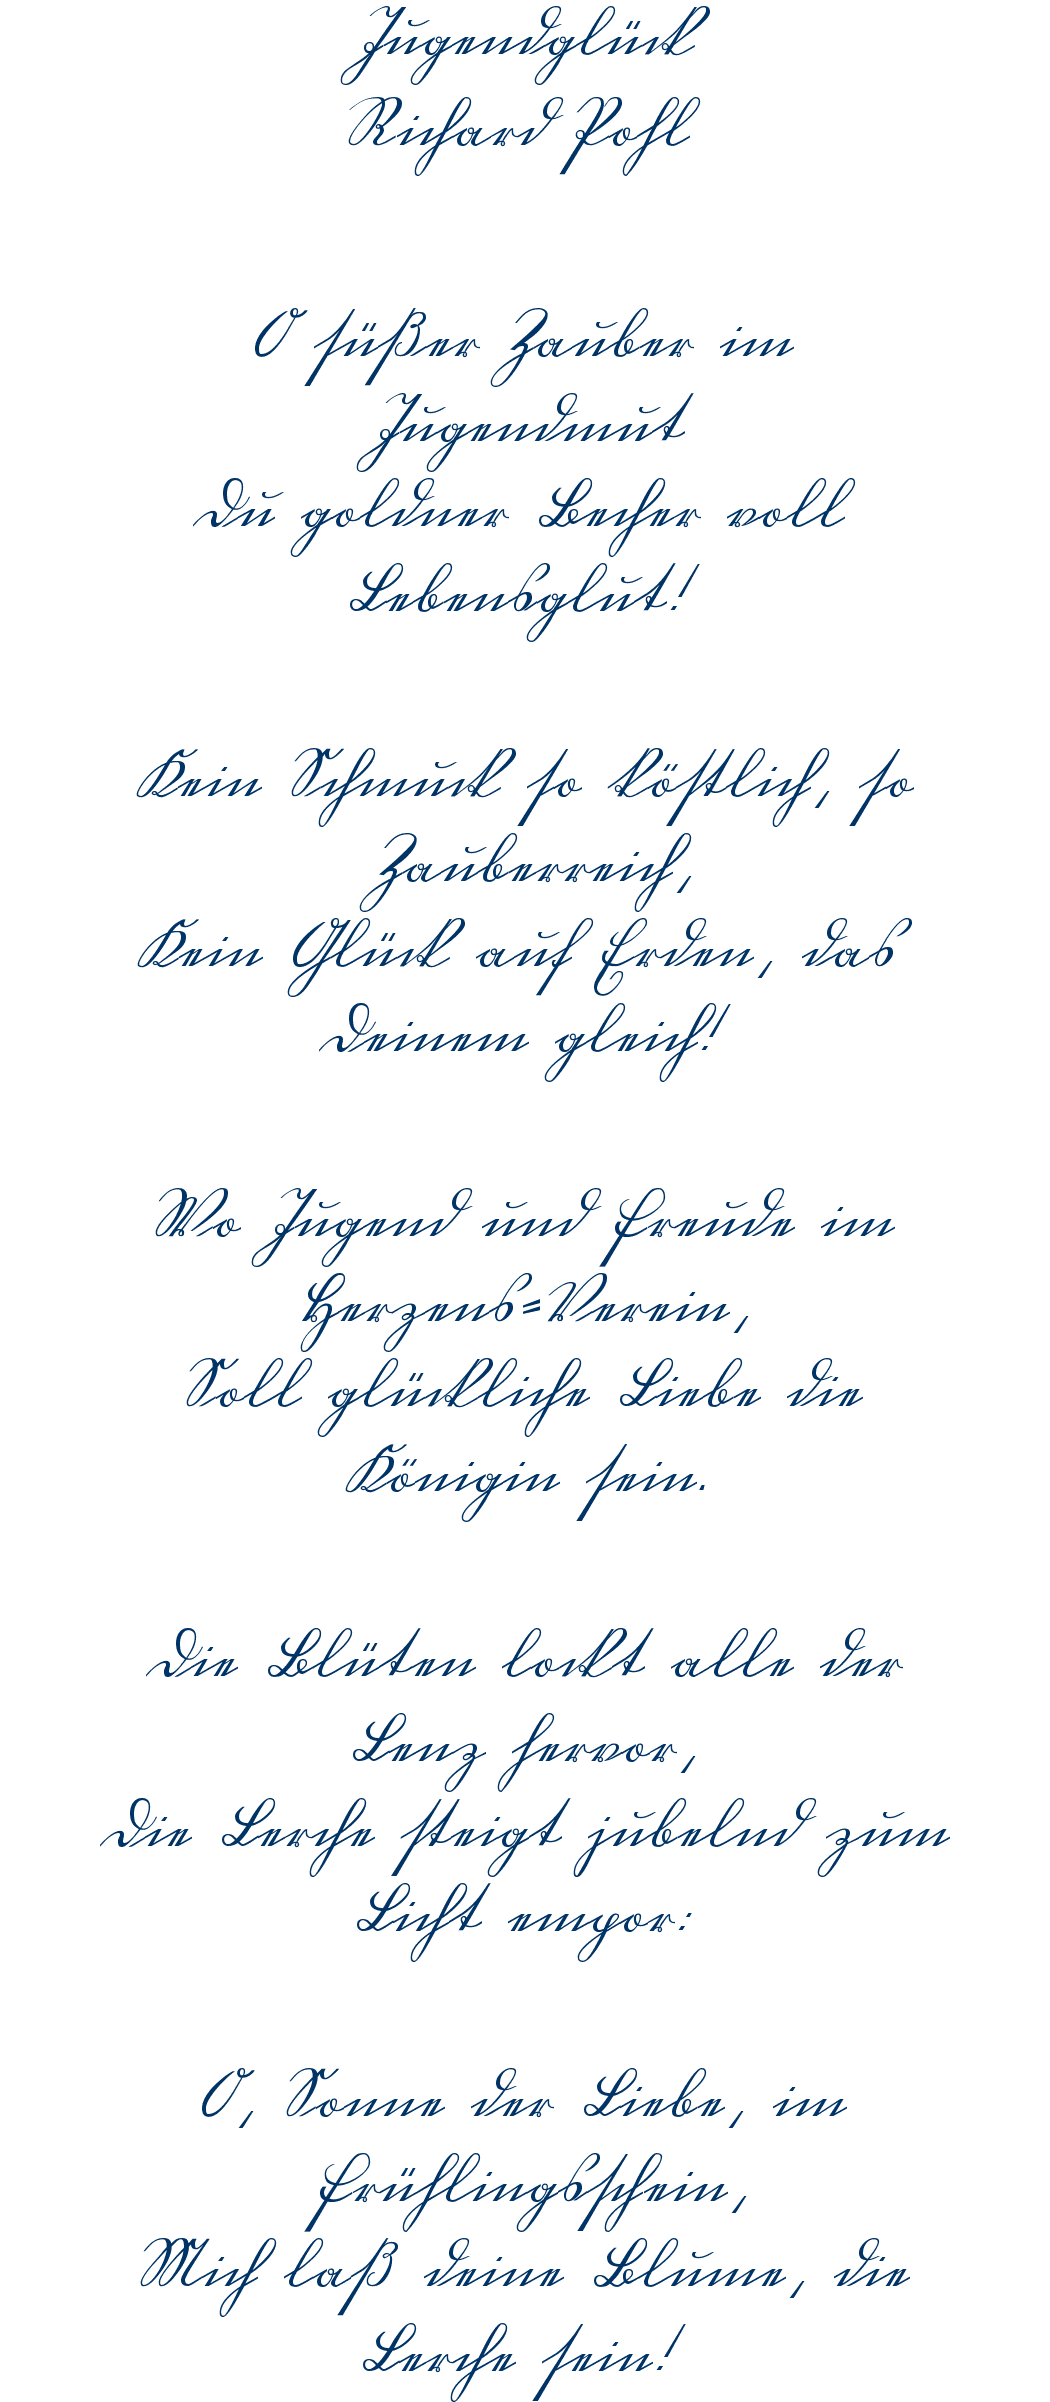 Jugendglück
Richard Pohl
O süßer Zauber im
Jugendmut
Du goldner Becher voll
Lebensglut!
Kein Schmuck so köstlich, so
Zauberreich,
Kein Glück auf Erden, das
Deinem gleich!
Wo Jugend und Freude im
Herzens=Verein,
Soll glückliche Liebe die
Königin sein.
Die Blüten lockt alle der
Lenz hervor,
Die Lerche steigt jubelnd zum
Licht empor:
O, Sonne der Liebe, im
Frühlingsschein,
Mich laß deine Blume, die
Lerche sein!